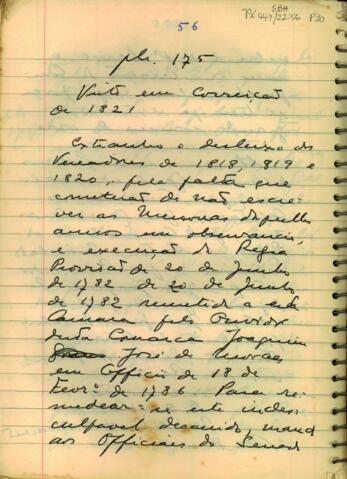 SBH
Pi 449/22:56 P30
56
pli. 175
Visto em Correição
de 1821
Extranho o desleixo dos
Vereadores de 1818, 1819 e
1820, pela falta que
cometerão de não escre-
ver as Memorias daquelles
annos em observancia,
e execução da Regia
Provisão de 20 de Junho
de 1782 de 20 de Junho
de 1782 remettida a esta
Camara pelo Ouvidor
desta Comarca Joaquim
José de Moraes
em Officio de 18 de
Fever.º de 1786 Para re-
medear-se este indes-
culpavel descuido, mand
aos Officiais do Senad